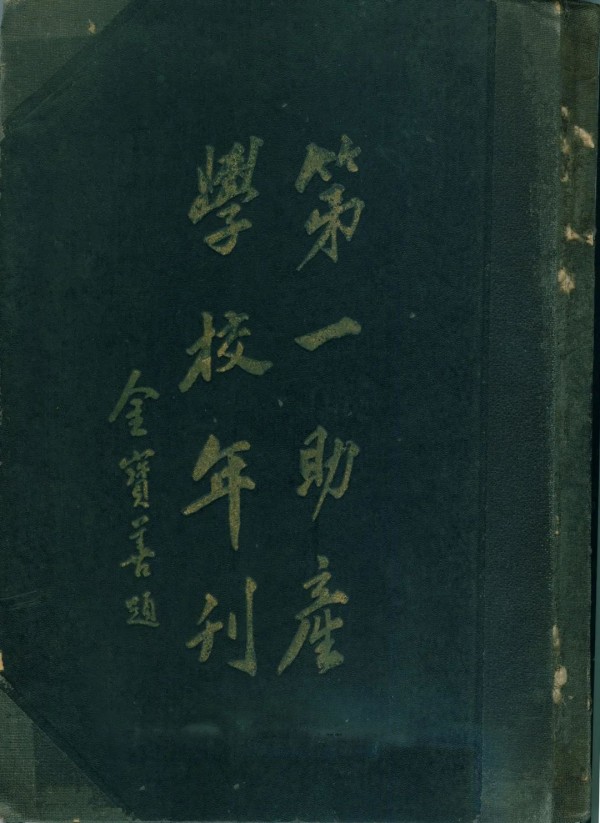 第一助產
學校年刊
金寶善題